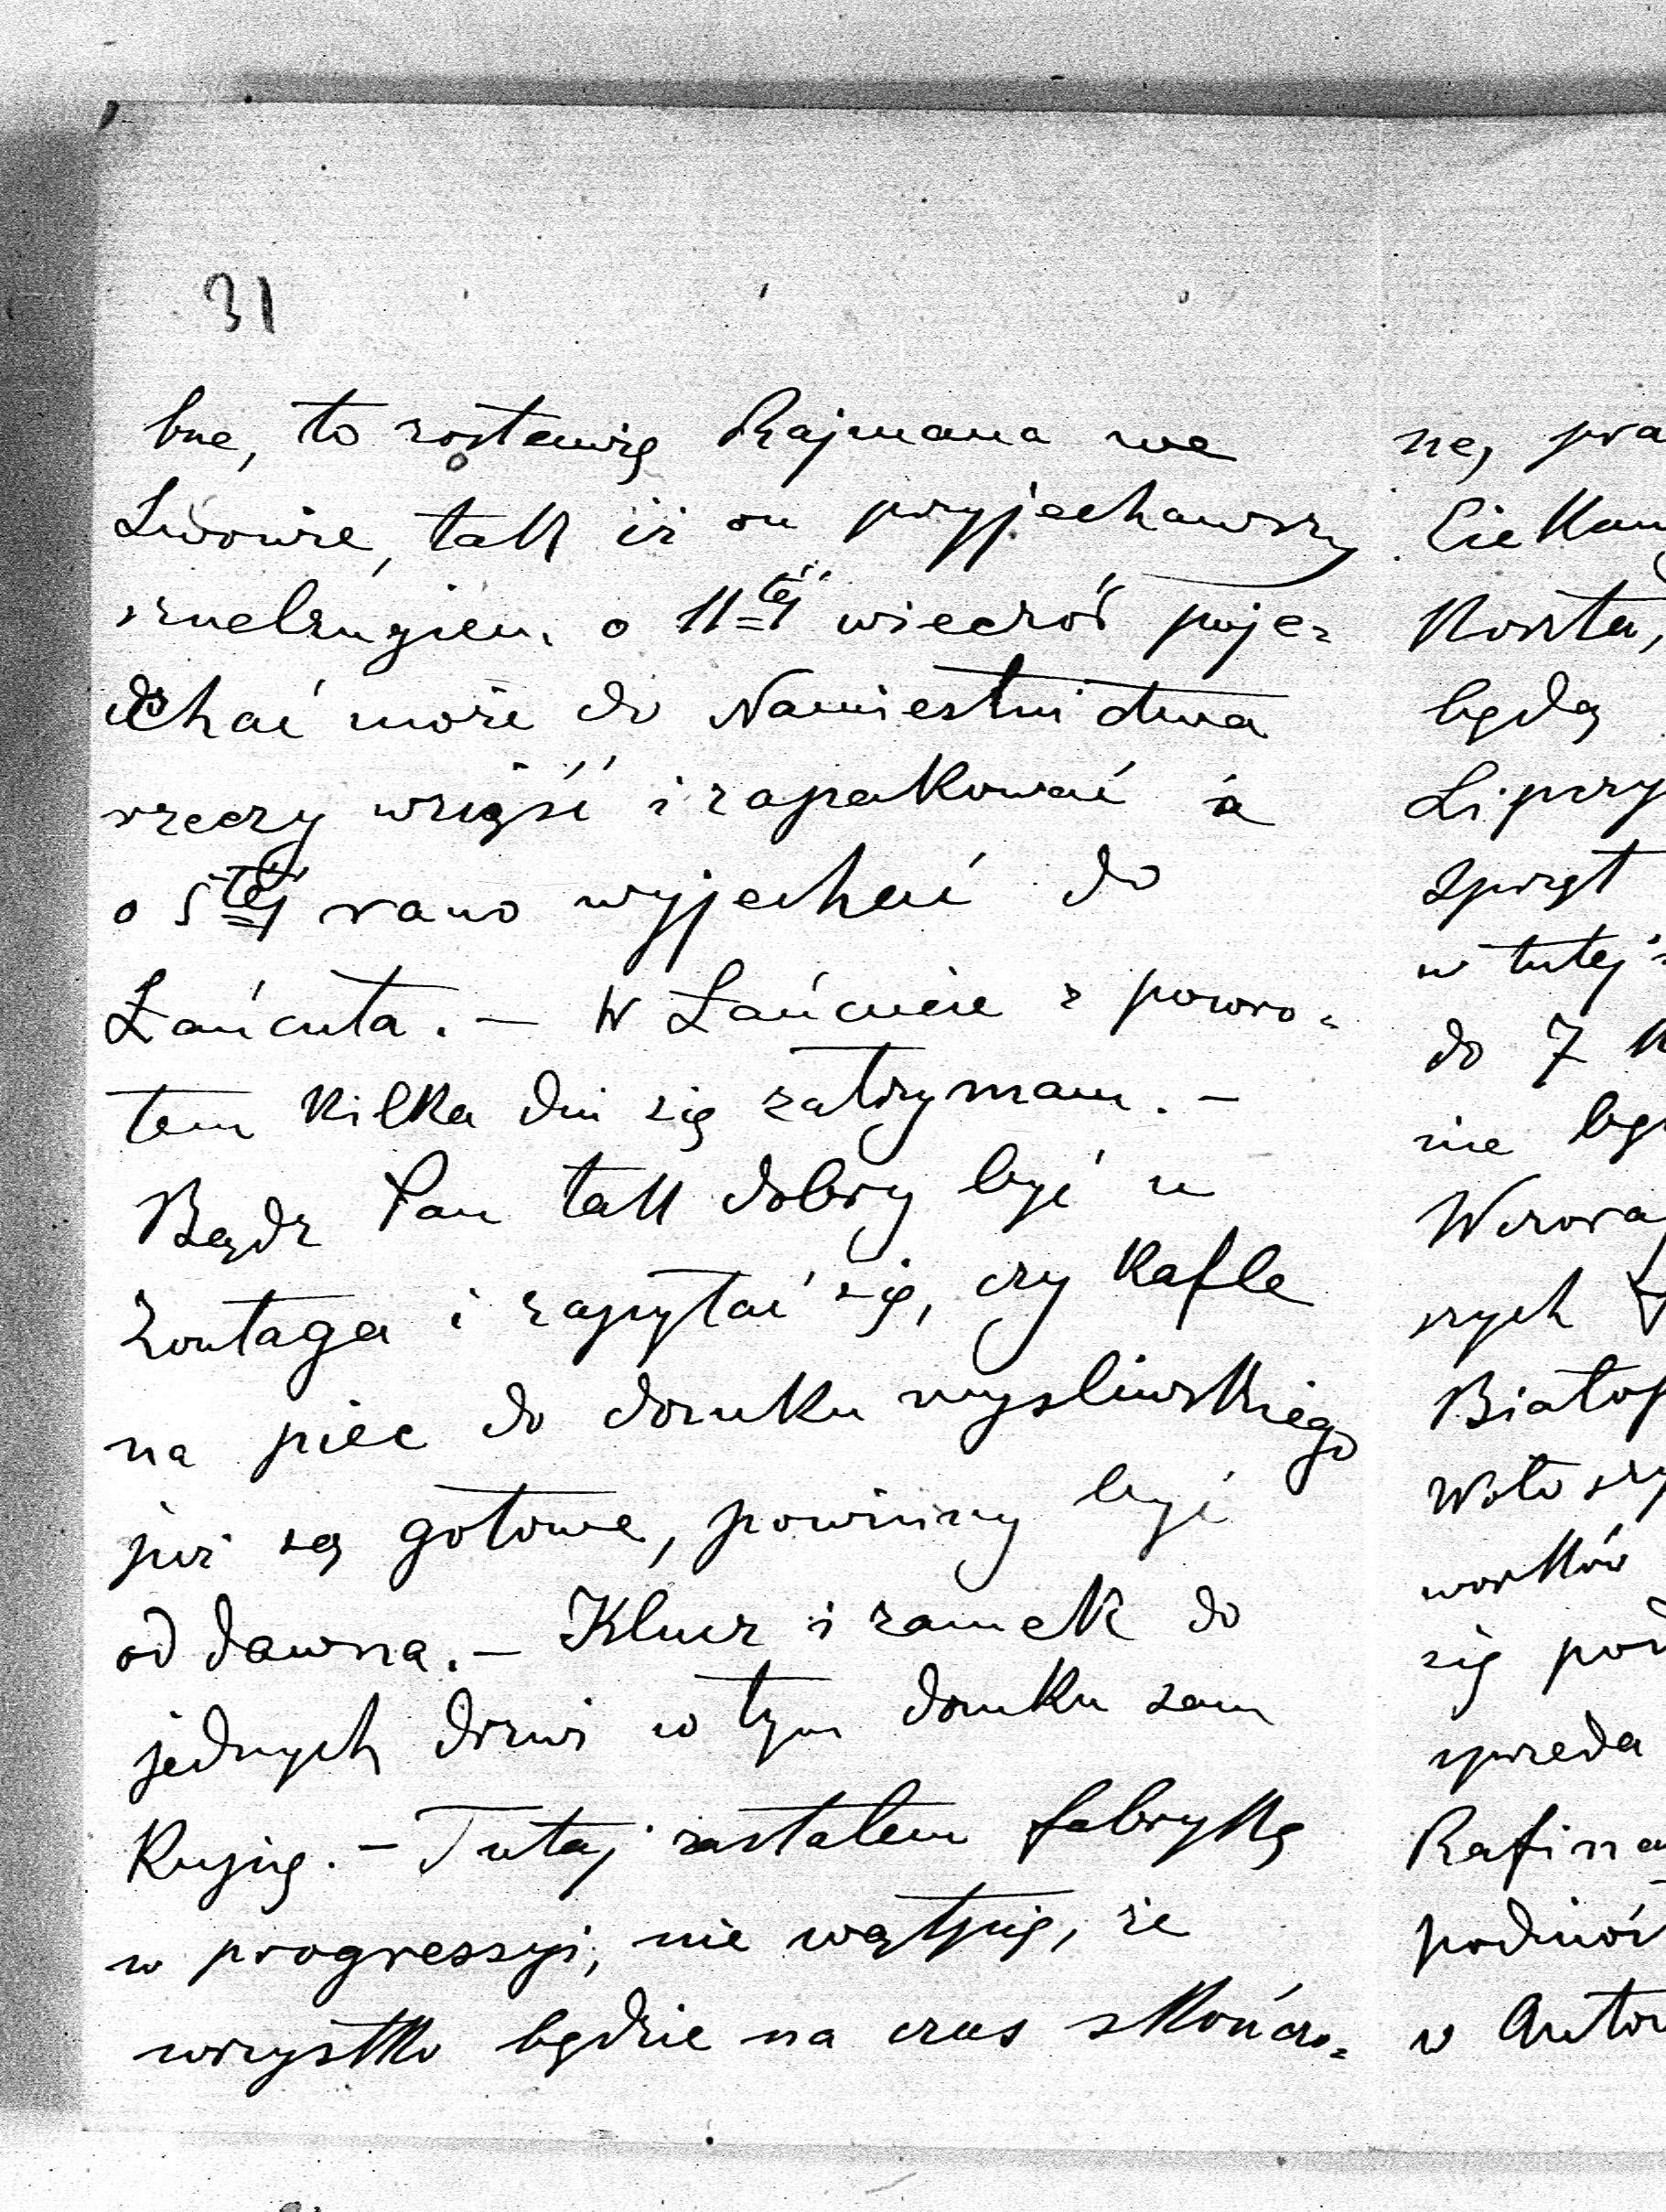 31
bne, to zostawię Rajmana we
Lwowie, tak iż on przyjechawszy
sznelzugiem o 11tej wieczór poje=
chać może do Namiestnictwa
rzeczy wziąść i zapakować a
o 5tej rano wyjechać do
Łańcuta. — W Łańcucie z powro=
tem kilka dni się zatrzymam. —
Bądź Pan tak dobry być u
Zontaga i zapytać się, czy kafle
na piec do domku myśliwskiego
już są gotowe, powinny być
od dawna. — Klucz i zamek do
jednych drzwi w tym domku sam
kupię. — Tutaj zastałem fabrykę
w progressyi, nie wątpię, że
wszystko będzie na czas skończo=
ne, pra
Ciekaw
Koszta,
będą
Lipczy
sprzęt
w tutejs
do 7 k
nie by
szych
Białop
Wołoszy
worków
się pod
sprzeda
Rafina
podwód
w Anton